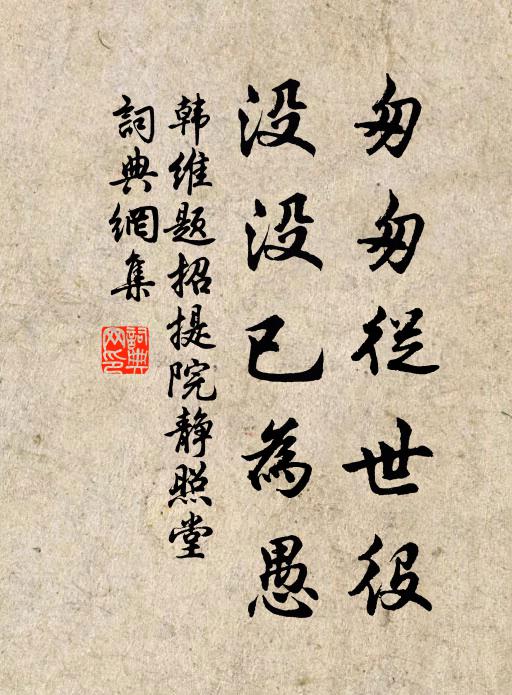 匆匆從世役
没没已為愚
韩维题招提院静照堂
詞典網集
詞典
网印